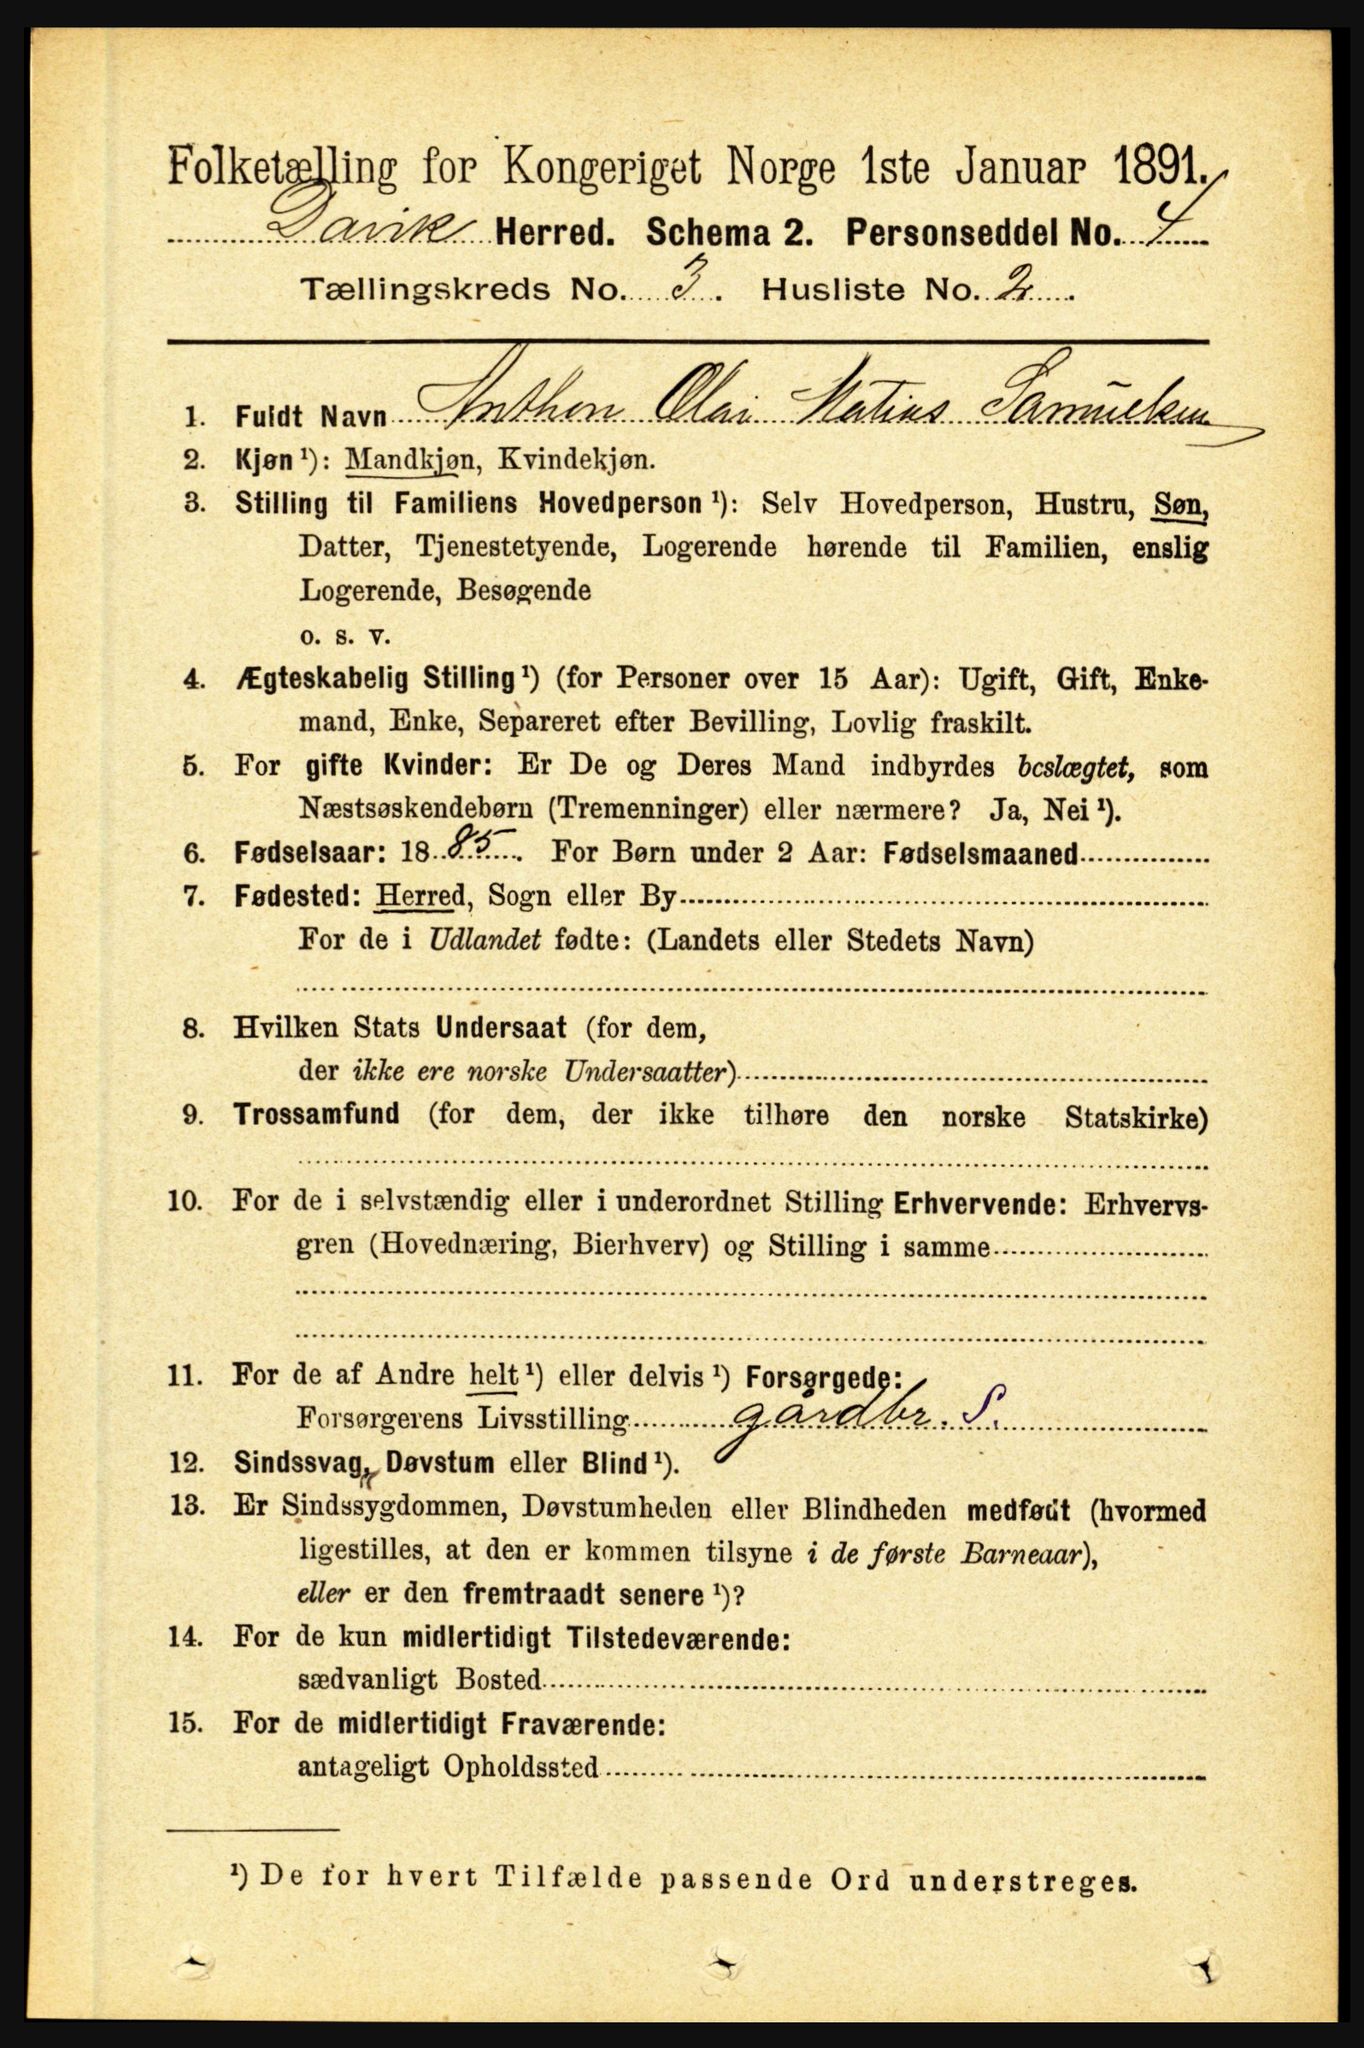 Folketælling for Kongeriget Norge 1ste Januar 1891.
Davik Herred. Schema 2. Personseddel No. 4
Tællingskreds No. 3. Husliste No. 2.
1. Fuldt Navn Anthon Olai Matias Samuelsen
2. Kjøn ¹): Mandkjøn, Kvindekjøn.
3. Stilling til Familiens Hovedperson ¹): Selv Hovedperson, Hustru, Søn,
Datter, Tjenestetyende, Logerende hørende til Familien, enslig
Logerende, Besøgende
o. s. v.
4. Ægteskabelig Stilling ¹) (for Personer over 15 Aar): Ugift, Gift, Enke-
mand, Enke, Separeret efter Bevilling, Lovlig fraskilt.
5. For gifte Kvinder: Er De og Deres Mand indbyrdes beslægtet, som
Næstsøskendebørn (Tremenninger) eller nærmere? Ja, Nei ¹).
6. Fødselsaar: 1885. For Børn under 2 Aar: Fødselsmaaned
7. Fødested: Herred, Sogn eller By
For de i Udlandet fødte: (Landets eller Stedets Navn)
8. Hvilken Stats Undersaat (for dem,
der ikke ere norske Undersaatter)
9. Trossamfund (for dem, der ikke tilhøre den norske Statskirke)
10. For de i selvstændig eller i underordnet Stilling Erhvervende: Erhvervs-
gren (Hovednæring, Bierhverv) og Stilling i samme
11. For de af Andre helt ¹) eller delvis ¹) Forsørgede:
Forsørgerens Livsstilling gårdbr. S.
12. Sindssvag, Døvstum eller Blind ¹).
13. Er Sindssygdommen, Døvstumheden eller Blindheden medfødt (hvormed
ligestilles, at den er kommen tilsyne i de første Barneaar),
eller er den fremtraadt senere ¹)?
14. For de kun midlertidigt Tilstedeværende:
sædvanligt Bosted
15. For de midlertidigt Fraværende:
antageligt Opholdssted
¹) De for hvert Tilfælde passende Ord understreges.